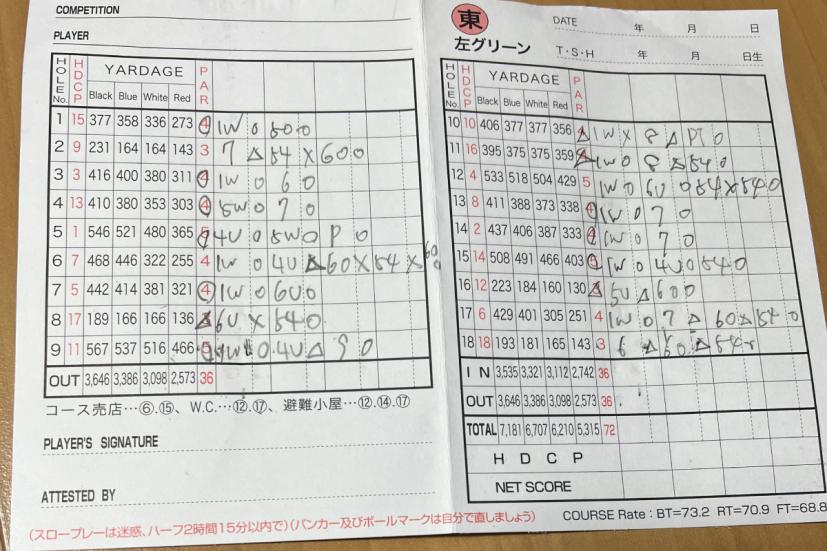 COMPETITION
PLAYER
HOLE No. HDCP YARDAGE PAR
Black Blue White Red
1 15 377 358 336 273 4 1W O 50 O
2 9 231 164 164 143 3 7 △ 54 × 60 O
3 3 416 400 380 311 4 1W O 6 O
4 13 410 380 353 303 4 5W O 7 O
5 1 546 521 480 365 5 4U O 5W O P O
6 7 468 446 322 255 4 1W O 4U △ 60 × 54 × 60 O
7 5 442 414 381 321 4 1W O 6U O
8 17 189 166 166 136 3 6U × 54 O
9 11 567 537 516 466 1W O 4U △ 9 O
OUT 3,646 3,386 3,098 2,573 36
コース売店…⑥.⑮、W.C.…⑫.⑰、避難小屋…⑫.⑭.⑰
PLAYER'S SIGNATURE
ATTESTED BY
(スロープレーは迷惑、ハーフ2時間15分以内で)(バンカー及びボールマークは自分で直しましょう)
東
左グリーン
DATE 年 月 日
T・S・H 年 月 日生
HOLE No. HDCP YARDAGE PAR
Black Blue White Red
10 10 406 377 377 356 4 1W × 8 △ PT O
11 16 395 375 375 359 4 1W O 8 △ 54 O
12 4 533 518 504 429 5 1W O 6U O 54 × 54 O
13 8 411 388 373 338 4 1W O 7 O
14 2 437 406 387 333 4 1W O 7 O
15 14 508 491 466 403 5 1W O 4U O 54 O
16 12 223 184 160 130 3 5U △ 60 O
17 6 429 401 305 251 4 1W O 7 △ 60 △ 54 O
18 18 193 181 165 143 3 6 △ 60 △ 54
IN 3,535 3,321 3,112 2,742 36
OUT 3,646 3,386 3,098 2,573 36
TOTAL 7,181 6,707 6,210 5,315 72
HDCP
NET SCORE
COURSE Rate : BT=73.2 RT=70.9 FT=68.8